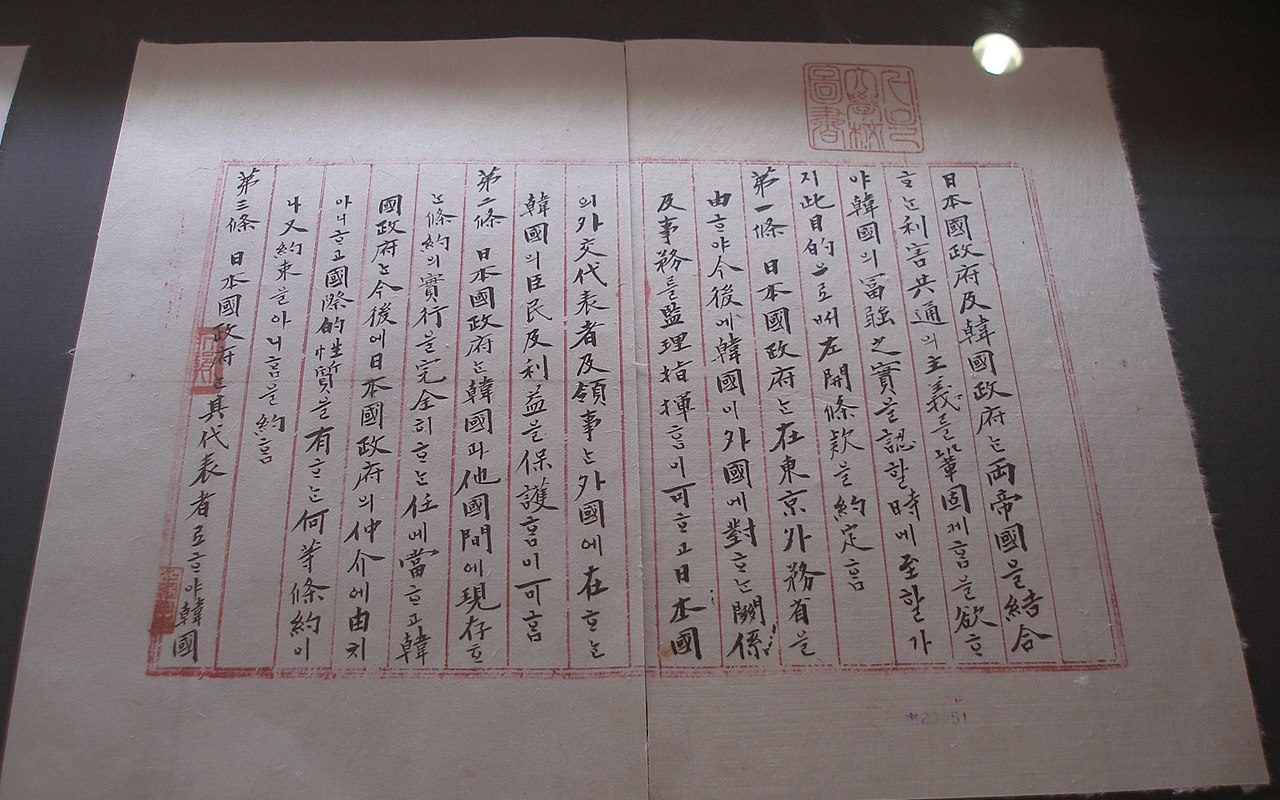 서울
大學校
圖書
日本國政府及韓國政府는両帝國을結合
ᄒᆞ는利害共通의主義를鞏固케ᄒᆞᆷ을欲ᄒᆞ
야韓國의冨强之實을認할時에至할가
지此目的으로써左開條欵을約定ᄒᆞᆷ
第一條 日本國政府는在東京外務省을
由ᄒᆞ야今後에韓國이外國에對ᄒᆞ는關係
及事務를監理指揮ᄒᆞᆷ이可ᄒᆞ고日本國
의外交代表者及領事는外國에在ᄒᆞ는
韓國의臣民及利益을保護ᄒᆞᆷ이可ᄒᆞᆷ
第二條 日本國政府는韓國과他國間에現存ᄒᆞ
는條約의實行을完全히ᄒᆞ는任에當ᄒᆞ고韓
國政府는今後에日本國政府의仲介에由치
아니ᄒᆞ고國際的性質을有ᄒᆞ는何等條約이
나又約束을아니ᄒᆞᆷ을約ᄒᆞᆷ
第三條 日本國政府는其代表者로ᄒᆞ야韓國